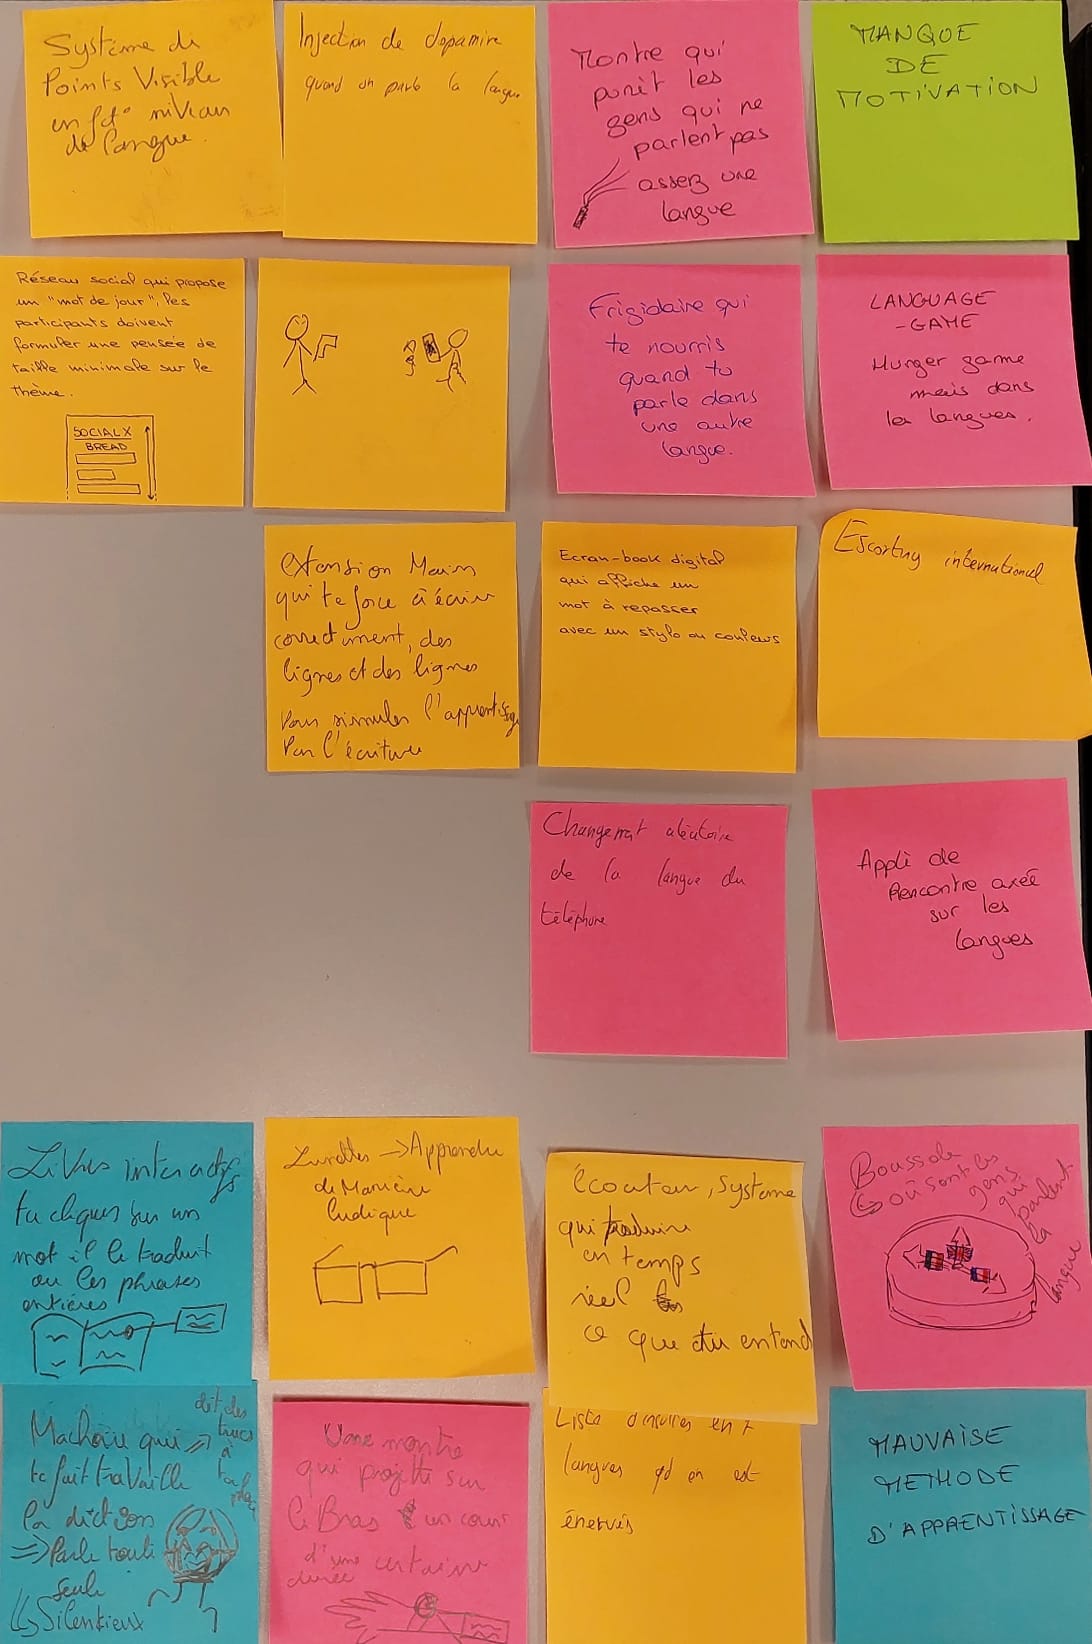 Système de
Points Visible
en fct° niveau
de langue.
Injection de dopamine
quand on parle la langue
Montre qui
punit les
gens qui ne
parlent pas
assez une
langue
MANQUE
DE
MOTIVATION
Réseau social qui propose
un "mot de jour", les
participants doivent
formuler une pensée de
taille minimale sur le
thème.
SOCIAL X
BREAD
Frigidaire qui
te nourris
quand tu
parle dans
une autre
langue.
LANGUAGE
-GAME
Hunger game
mais dans
les langues.
extension Mains
qui te force à écrire
correctement, des
lignes et des lignes
Pour simuler l'apprentissage
Par l'écriture
Ecran-book digital
qui affiche un
mot à repasser
avec un stylo ou couleurs
Escorting international
Changement aléatoire
de la langue du
téléphone
Appli de
Rencontre axée
sur les
langues
Livres interactifs
tu cliques sur un
mot il le traduit
ou les phrases
entières
Lunettes → Apprendre
de Manière
ludique
écouteur, Système
qui traduire
en temps
réel
ce que tu entend
Boussole
où sont les
gens
qui
parlent
la
langue
Machoire qui
te fait travaille
la diction
⇒ Parle toute
seule
Silentieux
dit des
trucs
à
ta place
Une montre
qui projette sur
le Bras un cour
d'une certaine
durée
Liste d'insultes en 7
langues qd on est
énervés
MAUVAISE
METHODE
D'APPRENTISSAGE